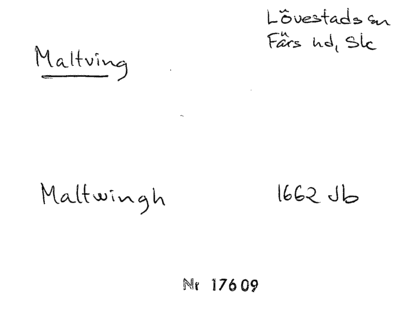 Lövestads sn
Färs hd, Sk
Maltving
Maltwingh 1662 Jb
Nr 17609